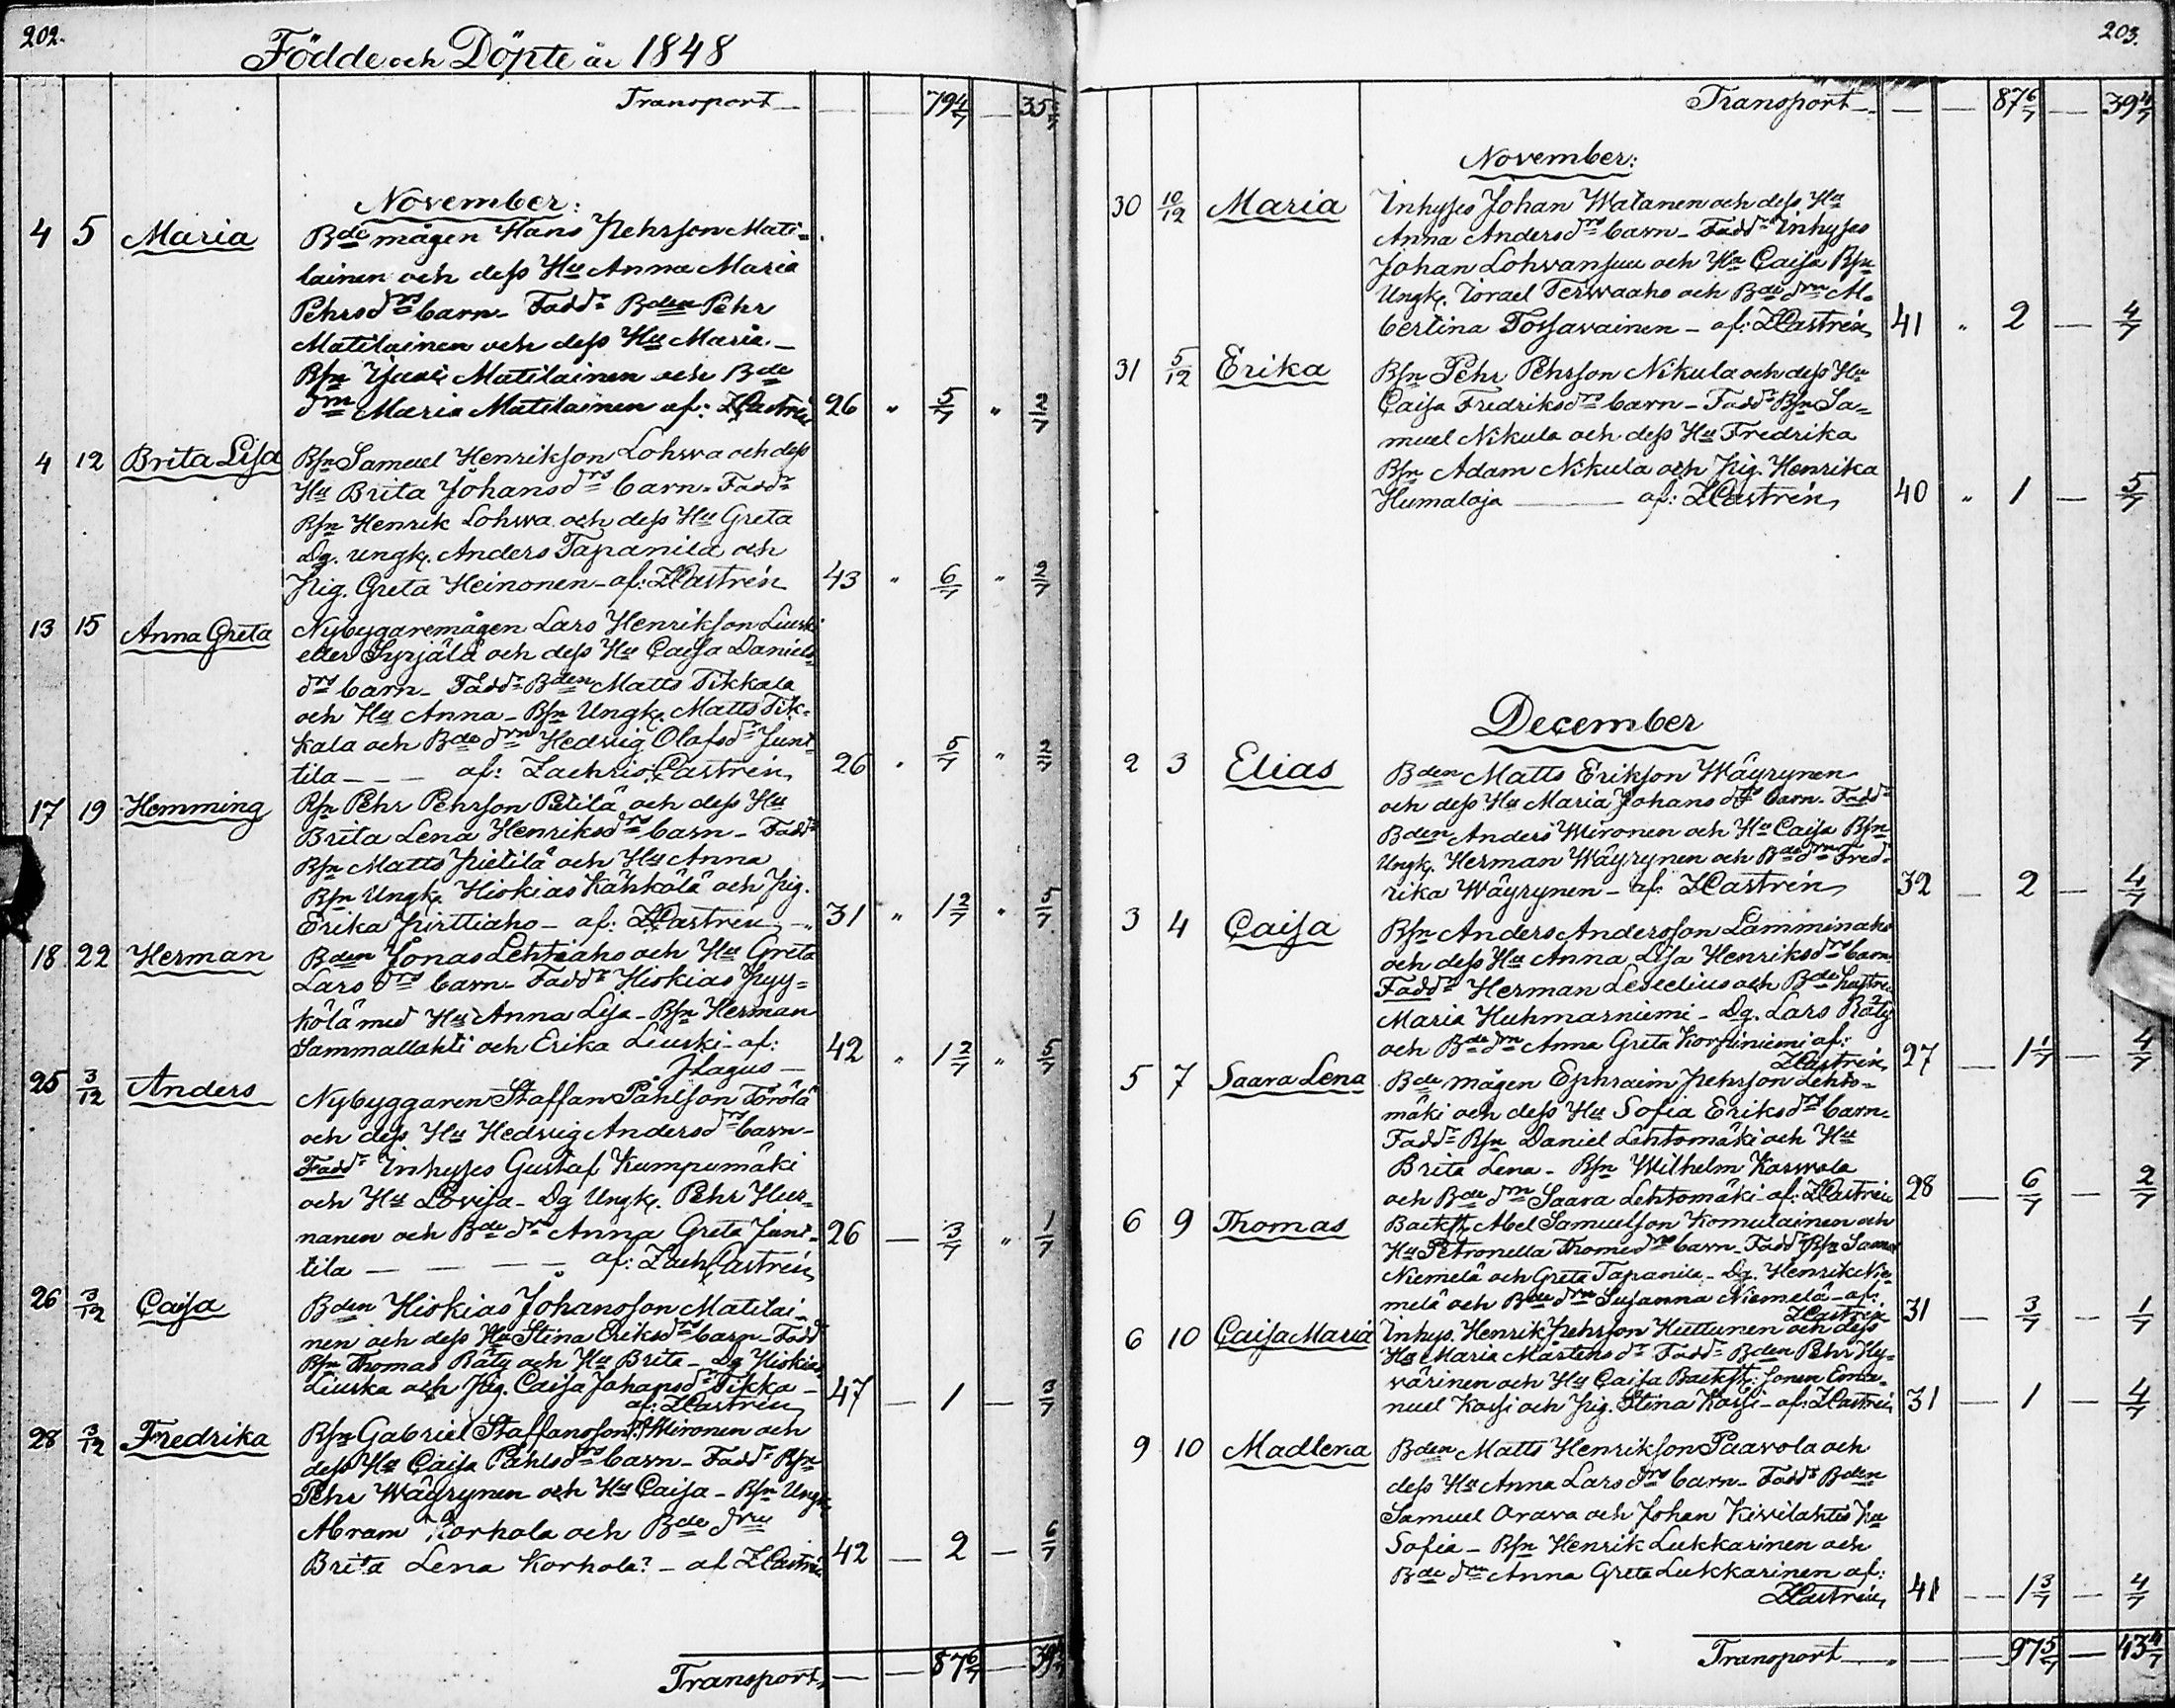 202.
Födde och Döpte år 1848
Transport — — — 79 4/7 — 35 2/7
November:
4 5 Maria Bde mågen Hans Pehrson Mati-
lainen och dess Hu Anna Maria
Pehrsdrs barn – Faddr Bden Pehr
Matilainen och dess Hu Maria. –
Bsn Matilainen och Bde
drn Maria Matilainen af: ZCastrén 26 " 5/7 " 2/7
4 12 Brita Lisa Bsn Samuel Henrikson Lohwa och dess
Hu Brita Johansdrs barn. Faddr
Bsn Henrik Lohwa och dess Hu Greta
Dg. Ungk. Anders Tapanila och
Pig. Greta Heinonen – af: ZCastrén 43 " 6/7 " 2/7
13 15 Anna Greta Nybygaremågen Lars Henrikson Liuski
eller Syrjälä och dess Hu Caisa Daniels-
drs barn – Faddr Bden Matts Tikkala
och Hu Anna – Bsn Ungk. Matts Tik-
kala och Bde drn Hedvig Olofsdr Junt-
tila – – – af: Zachris Castrén 26 " 5/7 " 2/7
17 19 Hemming Bsn Pehr Pehrson Petilä och dess Hu
Brita Lena Henriksdrs barn – Faddr
Bsn Matts Pietilä och Hu Anna
Bsn Ungk. Hiskias Kähkölä och Pig.
Erika Pirttiaho – af: ZCastrén – 31 " 1 2/7 " 5/7
18 22 Herman Bden Jonas Lehtiaho och Hu Greta
Lars drs barn – Faddr Hiskias Pyy-
kölä med Hu Anna Lisa – Bsn Herman
Sammallahti och Erika Liuski – af: 42 " 1 2/7 " 5/7
JLagus –
25 3/12 Anders Nybyggaren Staffan Påhlson Törölä
och dess Hu Hedvig Andersdrs barn –
Faddr Inhyses Gustaf Kumpumäki
och Hu Lovisa – Dg Ungk. Pehr Hur-
nanen och Bde dr Anna Greta Junt- 26 — 3/7 " 1/7
tila — — — — af: Zach Castrén
26 3/12 Caisa Bden Hiskias Johansson Matilai-
nen och dess Hu Stina Eriksdrs barn – Faddr
Bsn Thomas Räty och Hu Brita – Dg Hiskias
Liuska och Pig. Caisa Johansdr Tikka – 47 — 1 — 3/7
af: ZCastrén
28 3/12 Fredrika Bsn Gabriel Staffansson Mironen och
dess Hu Caisa Påhlsdrs barn – Faddr Bsn
Pehr Wäyrynen och Hu Caisa – Bsn Ungk.
Abram Korhola och Bde drn
Brita Lena Korhola? – af ZCastrén 42 — 2 — 6/7
Transport — — 87 6/7 — 39 4/7
203.
Transport — — — 87 6/7 — 39 4/7
November:
30 10/12 Maria Inhyses Johan Watanen och dess Hu
Anna Andersdrs barn – Faddr Inhyses
Johan Lohvansuu och Hu Caisa Bsn
Ungk. Israel Terwaaho och Bde drn Al-
bertina Tossavainen – af: ZCastrén 41 " 2 — 4/7
31 5/12 Erika Bsn Pehr Pehrson Nikula och dess Hu
Caisa Fredriksdrs barn – Faddr Bsn Sa-
muel Nikula och dess Hu Fredrika
Bsn Adam Nikula och Pig. Henrika
Humaloja ——— af: ZCastrén 40 " 1 — 5/7
December
2 3 Elias Bden Matts Erikson Wäyrynen
och dess Hu Maria Johansdrs barn. Faddr
Bden Anders Mironen och Hu Caisa Bsn
Ungk. Herman Wäyrynen och Bde drn Fred-
rika Wäyrynen – af: ZCastrén 32 — 2 — 4/7
3 4 Caisa Bsn Anders Andersson Lamminaho
och dess Hu Anna Lisa Henriksdrs barn
Faddr Herman och Bde
Maria Huhmarniemi – Dg. Lars Räty
och Bde drn Anna Greta Korpiniemi af:
ZCastrén 27 — 1 1/7 — 4/7
5 7 Saara Lena Bde mågen Ephraim Pehrson Lehto-
mäki och dess Hu Sofia Eriksdrs barn –
Faddr Bsn Daniel Lehtomäki och Hu
Brita Lena – Bsn Wilhelm Karwola
och Bde drn Saara Lehtomäki – af: ZCastrén 28 — 6/7 — 2/7
6 9 Thomas Backst. Abel Samuelson Komulainen och
Hu Petronella Thomedrs barn – Faddr Bsn
Niemelä och Greta Tapanila – Dg. Henrik Nie-
melä och Bde drn Susanna Niemelä – af:
ZCastrén 31 — 3/7 — 1/7
6 10 Caisa Maria Inhys. Henrik Pehrson Huttunen och dess
Hu Maria Mårtensdr Faddr Bden Pehr Hy-
värinen och Hu Caisa Backst: sonen Ema-
nuel Kassi och Pig. Stina Kassi – af: ZCastrén 31 — 1 — 4/7
9 10 Madlena Bden Matts Henrikson Paavola och
dess Hu Anna Larsdrs barn – Faddr Bden
Samuel Orava och Johan Kivilahtis Hu
Sofia – Bsn Henrik Lukkarinen och
Bde drn Anna Greta Lukkarinen af:
ZCastrén 41 — 1 3/7 — 4/7
Transport — — — 97 5/7 — 43 4/7